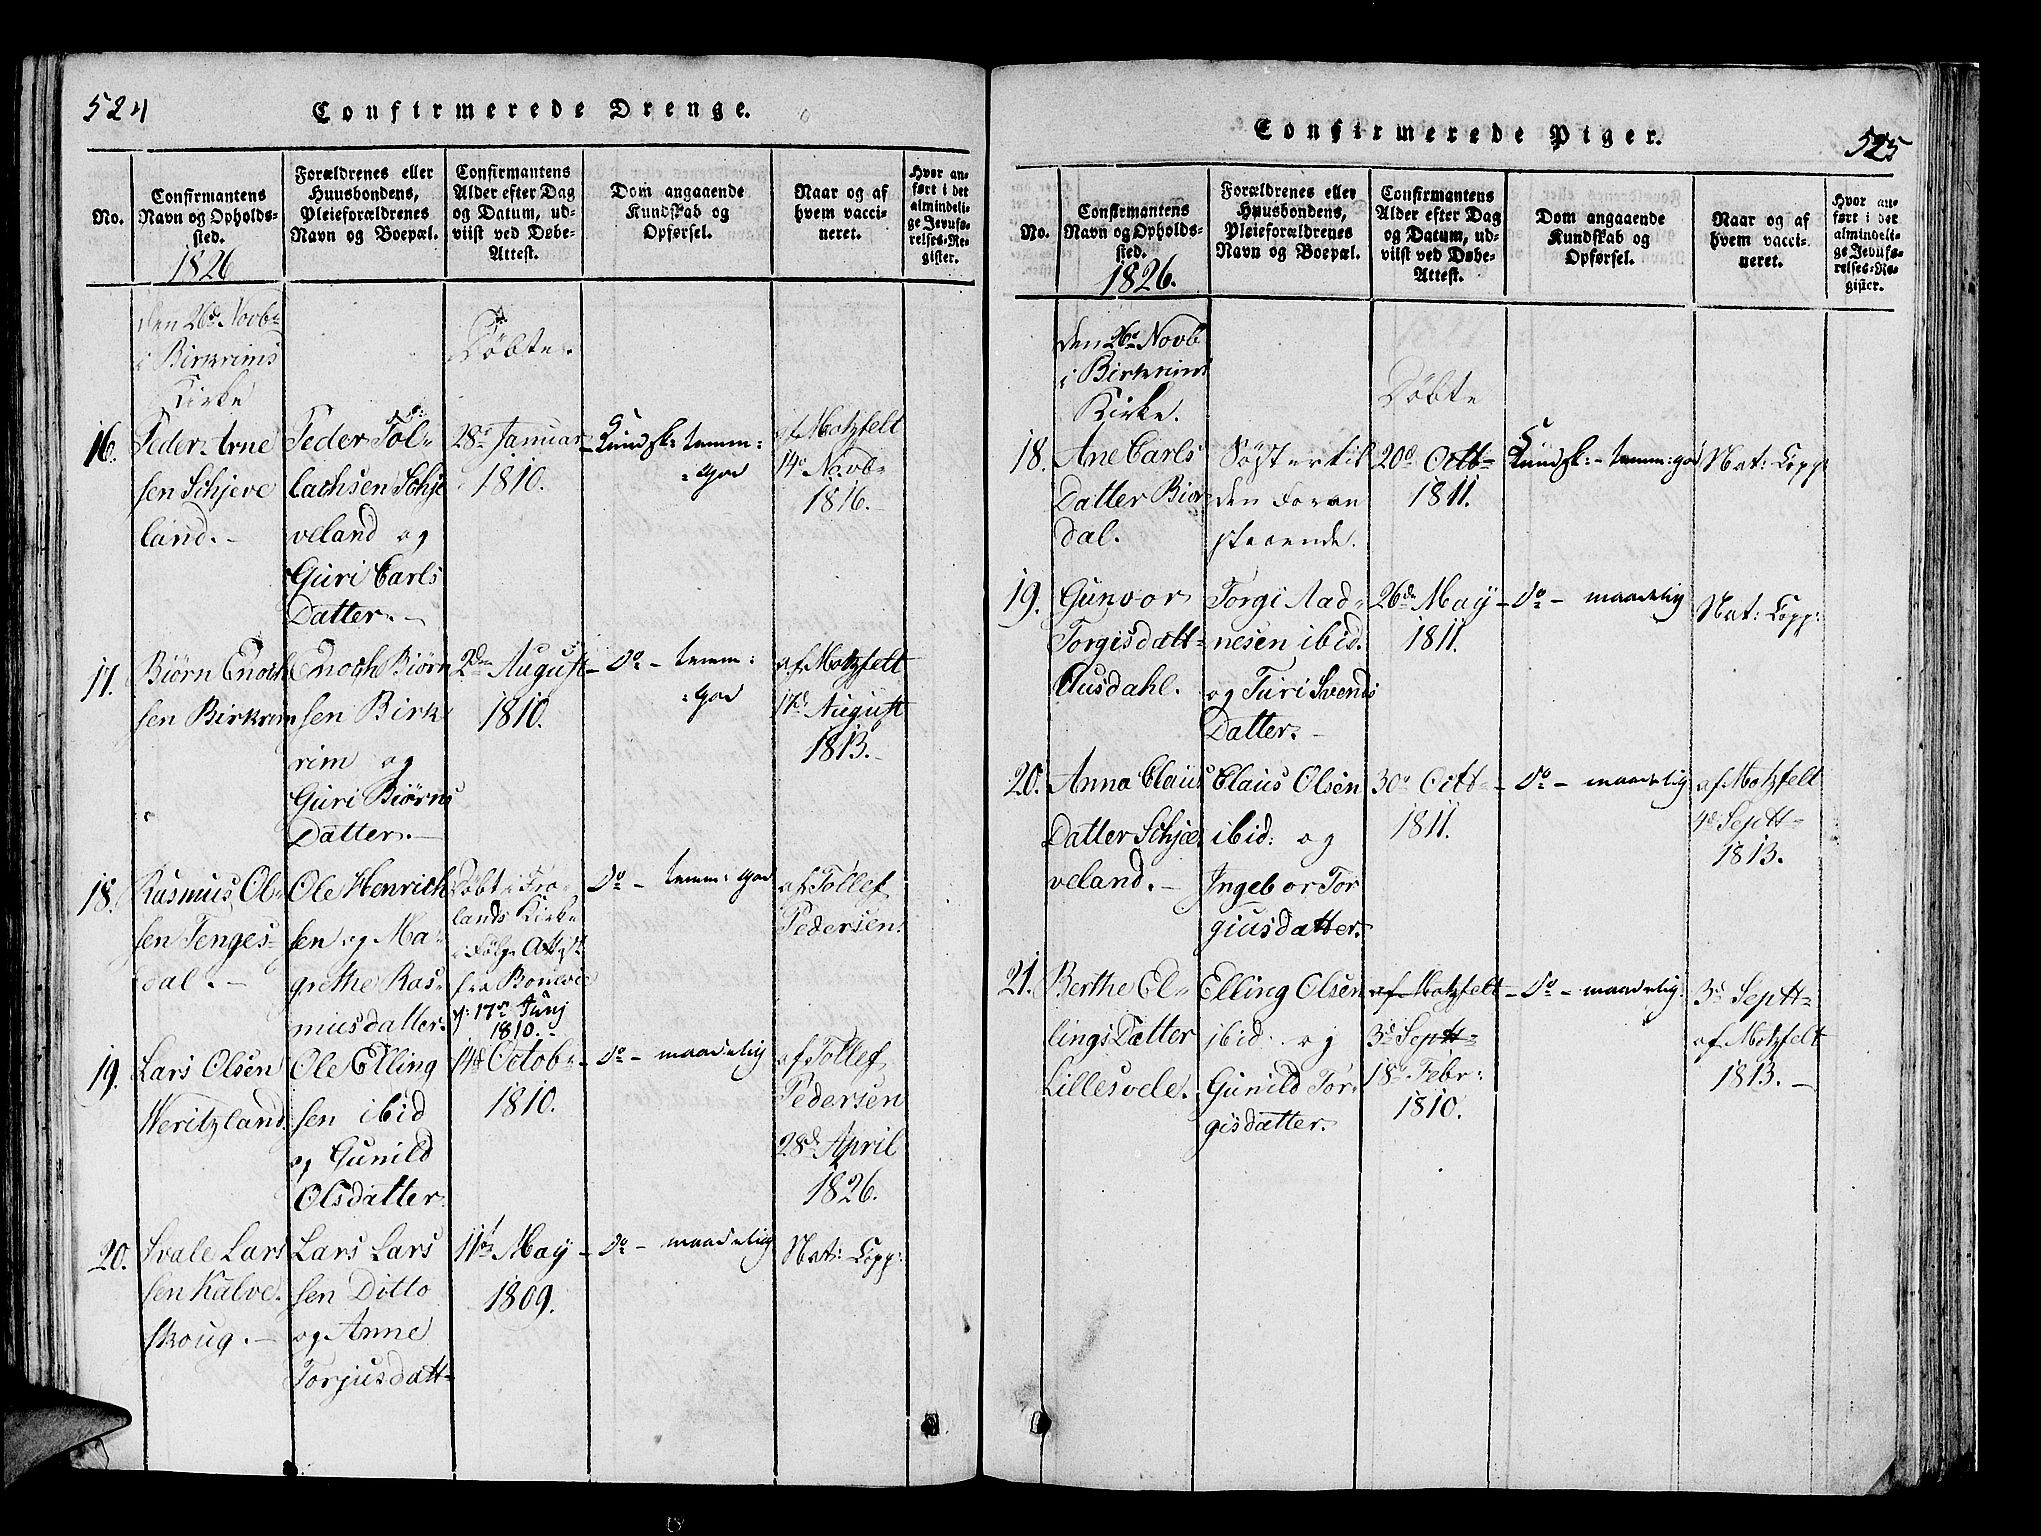 524
Confirmerede Drenge.
No.
Confirmantens
Navn og Opholds-
sted.
1826
Forældrenes eller
Huusbondens,
Pleieforældrenes
Navn og Boepæl.
Confirmantens
Alder efter Dag
og Datum, ud-
viist ved Døbe-
Attest.
Dom angaaende
Kundskab og
Opførsel.
Naar og af
hvem vacci-
neret.
Hvor an-
ført i det
almindeli-
ge Jevnfø-
relses-Re-
gister.
den 26de Novb
i Birkrims
Kirke
Döbte
16.
Peder Arne
sen Schjeve
land.
Peder Tol-
lachsen Schje
veland og
Guri Carls
Datter.
28de Januar
1810.
Kundsk: temm:
god
af Motzfelt
14de Novb
1816.
17.
Biørn Enoch
sen Birkrem
Enoch Biørn
sen Birk
rim og
Guri Biørns
Datter.
2den August
1810.
Do - temm:
god
af Motzfelt
17de August
1813.
18.
Rasmus Ol-
sen Tenges-
dal.
Ole Henrich
sen og Ma-
grethe Ras-
musdatter.
Döbt i Fro-
lands Kirke
i Følge Attest
fra
17de Junj
1810.
Do - temm: god
af Tollef
Pedersen.
19.
Lars Olsen
Weritzland.
Ole Elling
sen ibid
og Gunild
Olsdatter.
14de Octob
1810.
Do - maadelig
af Tollef
Pedersen
28de April
1826.
20.
Svale Lars
sen Kalve-
skoug.
Lars Lars
sen Ditto
og Anne
Torjusdatt
11te May
1809.
Do - maadelig
Nat: Copp:
Confirmerede Piger.
525
No.
Confirmantens
Navn og Opholds-
sted.
1826.
Forældrenes eller
Huusbondens,
Pleieforældrenes
Navn og Boepæl.
Confirmantens
Alder efter Dag
og Datum, ud-
viist ved Døbe-
Attest.
Dom angaaende
Kundskab og
Opførsel.
Naar og af
hvem vacci-
neret.
Hvor an-
ført i det
almindeli-
ge Jevnfø-
relses-Re-
gister.
den 26de Novb
i Birkrims
Kirke.
Döbte
18.
Ane Carls
Datter Bior
dal.
Søster til
den Foran
staaende.
20de Octb
1811.
Kundsk: - temm: god
Nat: Copp:
19.
Gunvor
Torgisdatt
Ousdahl.
Torgi Aad-
nesen ibid.
og Turi Svends
Datter.
26de May
1811.
Do - maadelig
Nat: Copp:
20.
Anna Claus
Datter Schje-
veland.
Claus Olsen
ibid: og
Ingebor Tor
giusdatter.
30de Octb
1811.
Do - maadelig
af Motzfelt
4de Septb
1813.
21.
Berthe El-
lings Datter
Lillesvele.
Elling Olsen
ibid. og
Gunild Tor-
gisdatter.
af Motzfelt
3de Septb
18de Febr:
1810.
Do - maadelig:
3de Septb
af Motzfelt
1813.